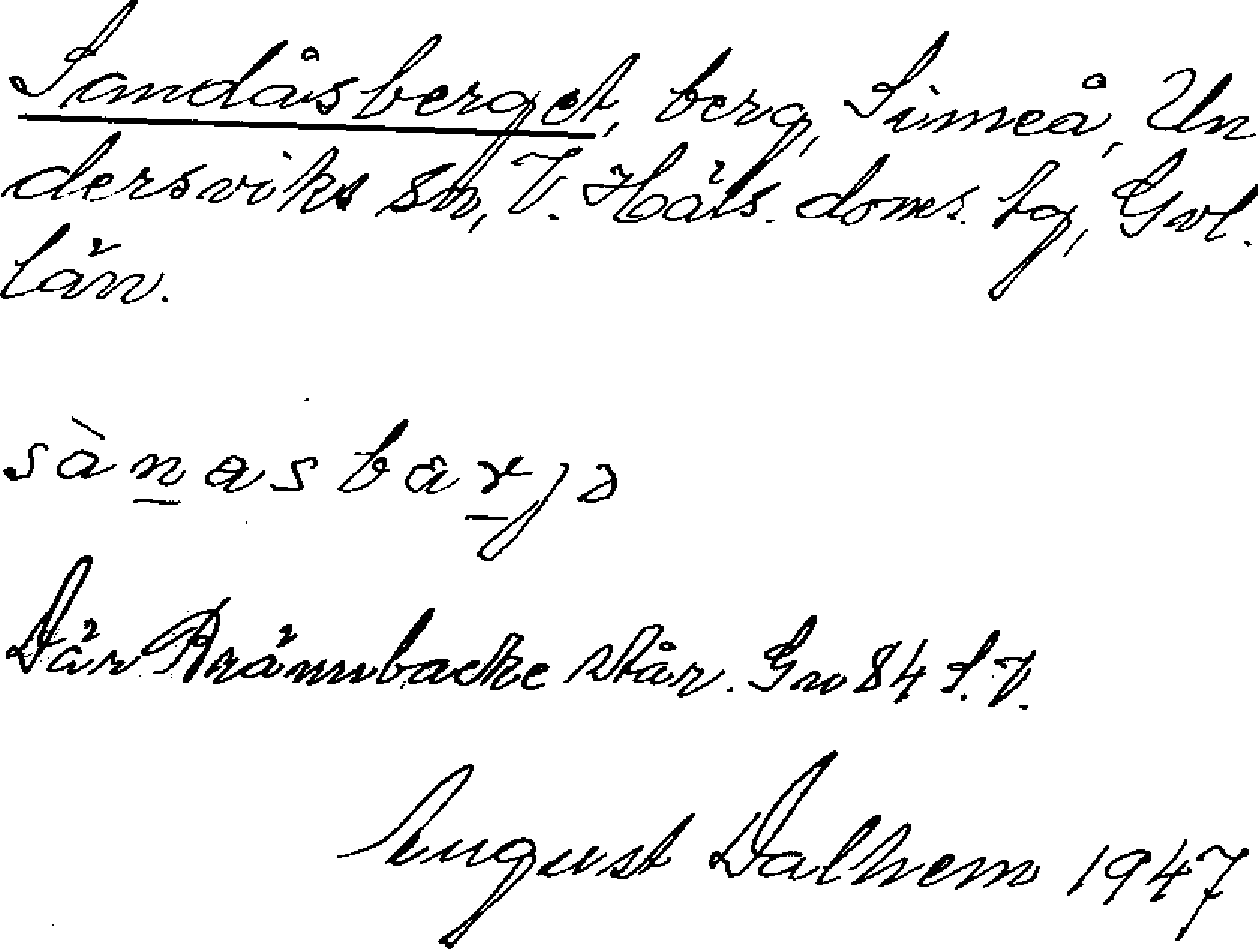 Sandåsberget, berg, Simeå, Un
dersviks sn, V. Häls. doms. hg, Gvl.
län.
sànasbarjə
Där Brännbacke står. Gw 84 S.V.
August Dalhem 1947